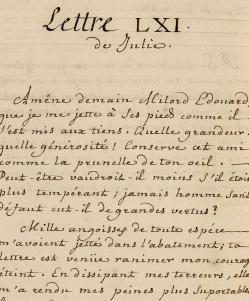 Lettre LXI.
de Julie.
Amêne demain Milord Edouard,
que je me jette à ses pieds comme il
s'est mis aux tiens. Quelle grandeur!
quelle générosité! Conserve cet ami
comme la prunelle de ton oeil.
Peut-être vaudroit-il moins s'il étoit
plus tempérant; jamais homme sans
défaut eut-il de grandes vertus?
Mille angoisses de toute espèce
m'avoient jettée dans l'abatement; ta
lettre est venüe ranimer mon courage
éteint. En dissipant mes terreurs, elle
m'a rendu mes peines plus suportables.